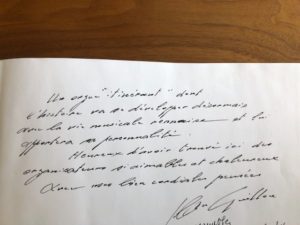 Un orgue "itinérant" dont
l'histoire va se développer désormais
avec la vie musicale roumaine et lui
apportera sa personnalité.
Heureux d'avoir trouvé ici des
organisateurs si aimables et chaleureux
Avec mes bien cordiales pensées
Jean Guillou